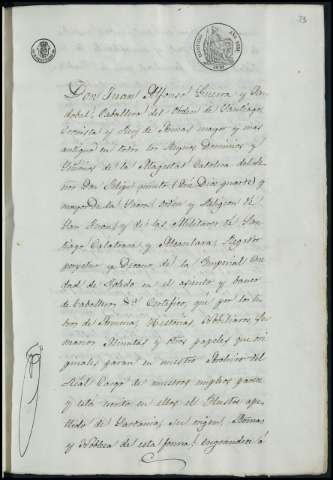 23
Don Juan Alfonso Guerra y San
dobal, Caballero del Orden de Santiago
Cronista y Rey de Armas mayor y mas
antiguo en todos los Reynos, Dominios y
Señorios de la Magestad Catolica del Se
ñor Don Felipe quinto, (que Dios guarde) y
mayor de la Sacra orden y Religion de
San Juan, y de las Militares de San
tiago Calatrava y Alcantara, Regidor
perpetuo y Decano de la Imperial Ciu
dad de Toledo en el asiento y banco
de Caballeros &a Certifico, que por los li
bros de Armeria, Historias, Nobiliarios,
manos Minutas y otros papeles que ori
ginales paran en nuestro Archivo del
Real Cargo de nuestros empleos parece
y está escrito en ellos el Ilustre ape
llido de su origen, Armas
y Nobleza de esta forma: engrandece á